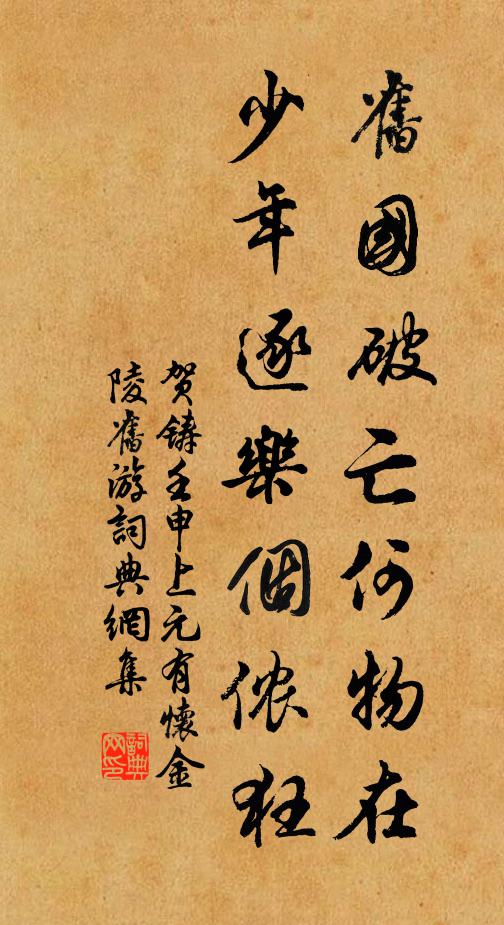 舊國破亡何物在
少年逐樂個侬狂
贺鑄壬申上元有懷金
陵舊游詞典網集
詞典
网印